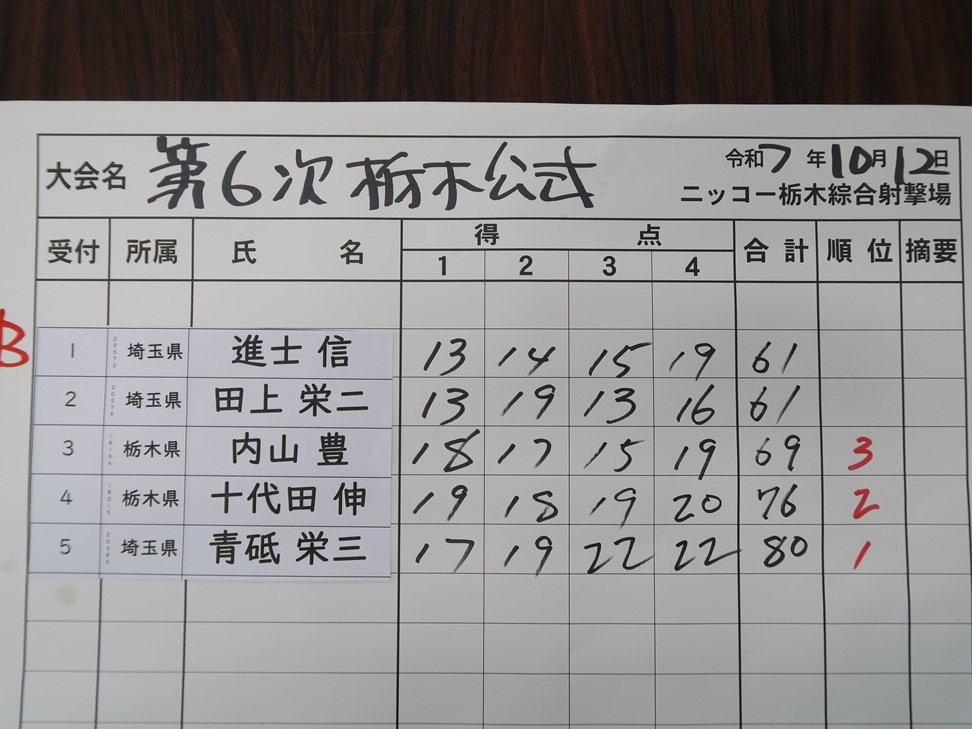 大会名 第6次 栃木公式 令和7年10月12日
ニッコー栃木綜合射撃場
受付 所属 氏名 得点 合計 順位 摘要
1 2 3 4
B
1 埼玉県 進士 信 13 14 15 19 61
2 埼玉県 田上 栄二 13 19 13 16 61
3 栃木県 内山 豊 18 17 15 19 69 3
4 栃木県 十代田 伸 19 18 19 20 76 2
5 埼玉県 青砥 栄三 17 19 22 22 80 1